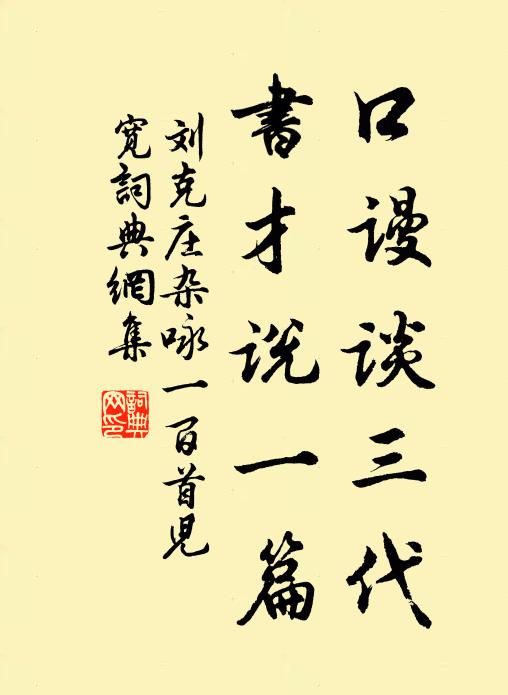 口谩谈三代
書才说一篇
刘克庄杂咏一百首児
寛詞典網集
詞典
网印